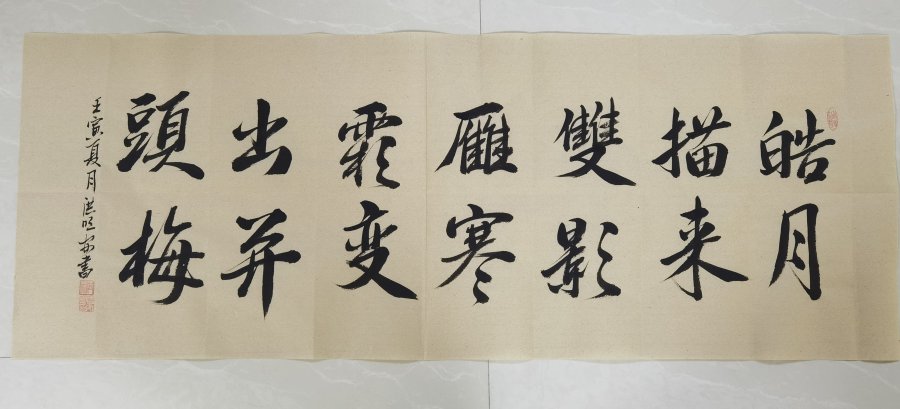 皓月
描来
雙影
雁寒
霜变
出并
頭梅
壬寅夏月 書